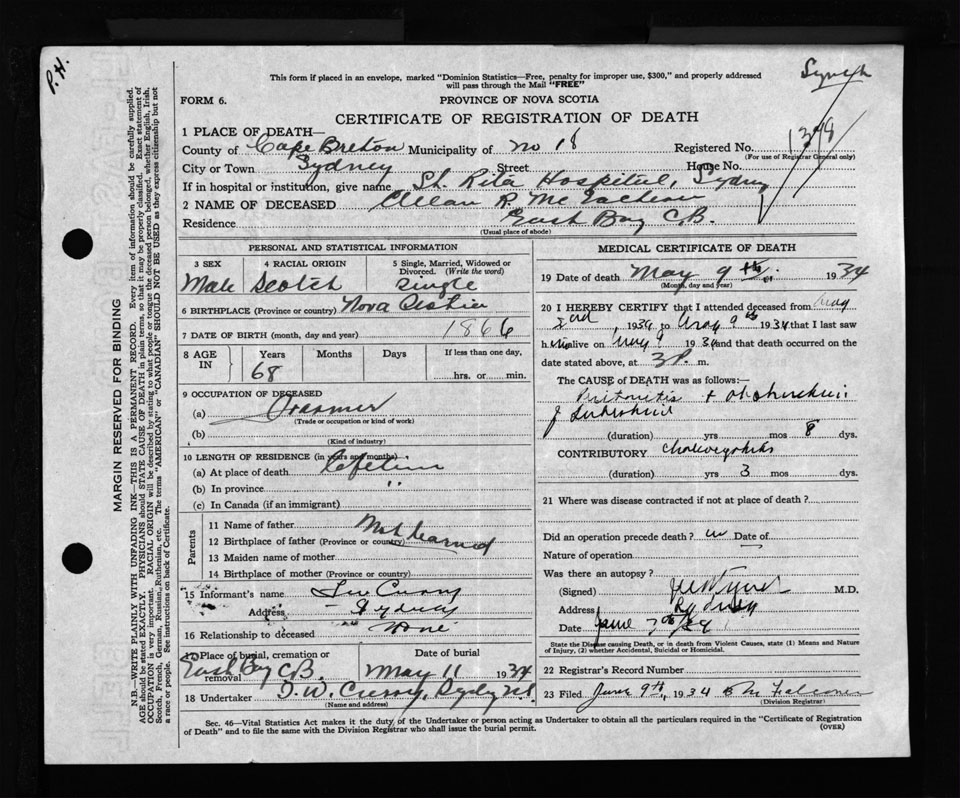 P.H.
This form if placed in an envelope, marked "Dominion Statistics—Free, penalty for improper use, $300," and properly addressed
will pass through the Mail "FREE"
FORM 6.
PROVINCE OF NOVA SCOTIA
CERTIFICATE OF REGISTRATION OF DEATH
1 PLACE OF DEATH—
County of Cape Breton Municipality of No 18 Registered No. 1379
(For use of Registrar General only)
City or Town Sydney Street House No.
If in hospital or institution, give name St. Rita Hospital, Sydney
2 NAME OF DECEASED Allan R. McEachern
Residence East Bay C.B.
(Usual place of abode)
PERSONAL AND STATISTICAL INFORMATION
3 SEX 4 RACIAL ORIGIN 5 Single, Married, Widowed or Divorced. (Write the word)
Male Scotch Single
6 BIRTHPLACE (Province or country) Nova Scotia
7 DATE OF BIRTH (month, day and year) 1866
8 AGE IN Years Months Days If less than one day,
68 hrs. or min.
9 OCCUPATION OF DECEASED
(a)
(Trade or occupation or kind of work)
(b)
(Kind of industry)
10 LENGTH OF RESIDENCE (in years and months)
(a) At place of death Lifetime
(b) In province "
(c) In Canada (if an immigrant)
Parents
11 Name of father Not learned
12 Birthplace of father (Province or country)
13 Maiden name of mother
14 Birthplace of mother (Province or country)
15 Informant's name Curry
Address Sydney
16 Relationship to deceased None
17 Place of burial, cremation or removal Date of burial
East Bay C.B. May 11 1934
18 Undertaker T. W. Curry, Sydney N.S.
(Name and address)
MEDICAL CERTIFICATE OF DEATH
19 Date of death May 9th 1934
(Month, day and year)
20 I HEREBY CERTIFY that I attended deceased from May
3rd, 1934 to May 9th 1934 that I last saw
h im alive on May 9 1934 and that death occurred on the
date stated above, at 3 P. m.
The CAUSE of DEATH was as follows:—
(duration) yrs mos 8 dys.
CONTRIBUTORY
(duration) yrs 3 mos dys.
21 Where was disease contracted if not at place of death?
Did an operation precede death? Date of
Nature of operation
Was there an autopsy?
(Signed) M.D.
Address Sydney
Date June
State the Disease causing Death, or in death from Violent Causes, state (1) Means and Nature of Injury, (2) whether Accidental, Suicidal or Homicidal.
22 Registrar's Record Number
23 Filed June 9th, 1934
(Division Registrar)
Sec. 46—Vital Statistics Act makes it the duty of the Undertaker or person acting as Undertaker to obtain all the particulars required in the "Certificate of Registration
of Death" and to file the same with the Division Registrar who shall issue the burial permit.
(OVER)
MARGIN RESERVED FOR BINDING
N.B.—WRITE PLAINLY WITH UNFADING INK—THIS IS A PERMANENT RECORD. Every item of information should be carefully supplied.
AGE should be stated EXACTLY. PHYSICIANS should STATE CAUSE OF DEATH in plain terms, so that it may be properly classified. Exact statement of
OCCUPATION is very important. RACIAL ORIGIN will be described by stating to what people or tongue the deceased person belonged, whether English, Irish,
Scotch, French, German, Russian, Ruthenian, etc. The terms "AMERICAN" or "CANADIAN" SHOULD NOT BE USED as they express citizenship but not
a race or people. See instructions on back of Certificate.